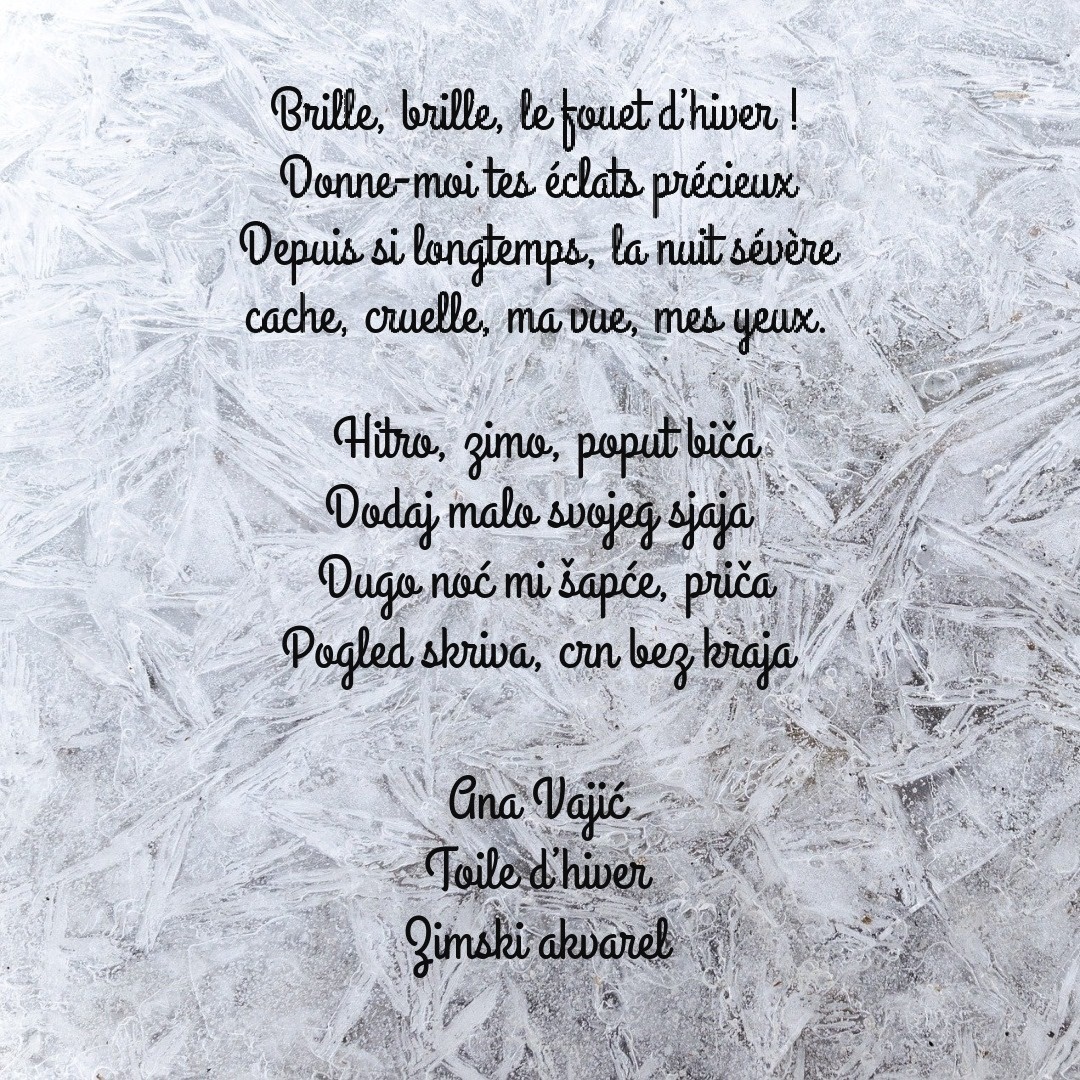 Brille, brille, le fouet d'hiver !
Donne-moi tes éclats précieux
Depuis si longtemps, la nuit sévère
cache, cruelle, ma vue, mes yeux.
Hitro, zimo, poput biča
Dodaj malo svojeg sjaja
Dugo noć mi šapće, priča
Pogled skriva, crn bez kraja
Ana Vajić
Toile d'hiver
Zimski akvarel